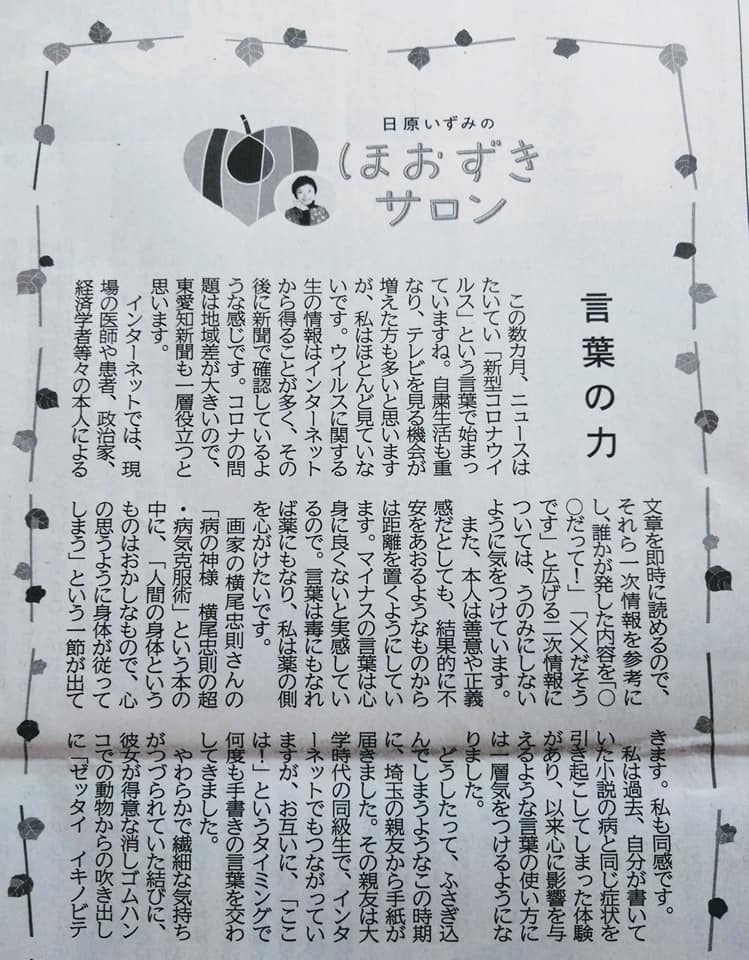 日原いずみの
ほおずき
サロン
言葉の力
この数カ月、ニュースは
たいてい「新型コロナウイ
ルス」という言葉で始まっ
ていますね。自粛生活も重
なり、テレビを見る機会が
増えた方も多いと思います
が、私はほとんど見ていな
いです。ウイルスに関する
生の情報はインターネット
から得ることが多く、その
後に新聞で確認しているよ
うな感じです。コロナの問
題は地域差が大きいので、
東愛知新聞も一層役立つと
思います。
インターネットでは、現
場の医師や患者、政治家、
経済学者等々の本人による
文章を即時に読めるので、
それら一次情報を参考に
し、誰かが発した内容を「〇
〇だって！」「××だそう
です」と広げる二次情報に
ついては、うのみにしない
ように気をつけています。
また、本人は善意や正義
感だとしても、結果的に不
安をあおるようなものから
は距離を置くようにしてい
ます。マイナスの言葉は心
身に良くないと実感してい
るので。言葉は毒にもなれ
ば薬にもなり、私は薬の側
を心がけたいです。
画家の横尾忠則さんの
「病の神様　横尾忠則の超
・病気克服術」という本の
中に、「人間の身体という
ものはおかしなもので、心
の思うように身体が従って
しまう」という一節が出て
きます。私も同感です。
私は過去、自分が書いて
いた小説の病と同じ症状を
引き起こしてしまった体験
があり、以来心に影響を与
えるような言葉の使い方に
は一層気をつけるようにな
りました。
どうしたって、ふさぎ込
んでしまうようなこの時期
に、埼玉の親友から手紙が
届きました。その親友は大
学時代の同級生で、インタ
ーネットでもつながってい
ますが、お互いに、「ここ
は！」というタイミングで
何度も手書きの言葉を交わ
してきました。
やわらかで繊細な気持ち
がつづられていた結びに、
彼女が得意な消しゴムハン
コでの動物からの吹き出し
に「ゼッタイ　イキノビテ